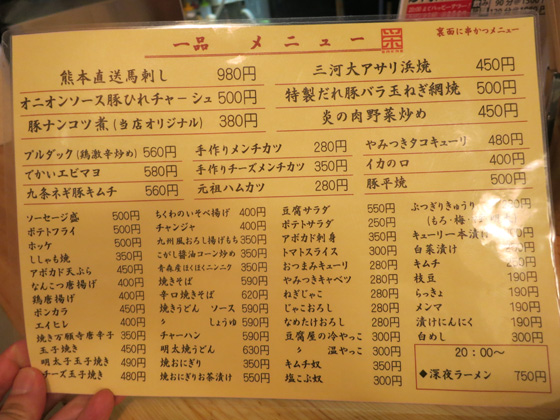 一品 メニュー
裏面に串かつメニュー
熊本直送馬刺し 980円
三河大アサリ浜焼 450円
オニオンソース豚ひれチャーシュ 500円
特製だれ豚バラ玉ねぎ網焼 500円
豚ナンコツ煮(当店オリジナル) 380円
炎の肉野菜炒め 450円
ブルダック(鶏激辛炒め) 560円
でかいエビマヨ 580円
九条ネギ豚キムチ 560円
手作りメンチカツ 280円
手作りチーズメンチカツ 350円
元祖ハムカツ 280円
やみつきタコキューリ 480円
イカのロ 400円
豚平焼 500円
ソーセージ盛 500円
ポテトフライ 500円
ホッケ 500円
ししゃも焼 350円
アボカド天ぷら 450円
なんこつ唐揚げ 400円
鶏唐揚げ 400円
ポンカラ 450円
エイヒレ 400円
焼き万願寺唐辛子 350円
玉子焼き 450円
明太子玉子焼き 490円
チーズ玉子焼き 480円
ちくわのいそべ揚げ 400円
チャンジャ 400円
九州風おろし揚げもち 350円
こがし醤油コーン炒め 350円
青森産ほくほくニンニク 350円
焼きそば 600円
辛口焼きそば 620円
焼きうどん ソース 590円
〃 しょうゆ 590円
チャーハン 590円
明太焼うどん 630円
焼おにぎり 350円
焼おにぎりお茶漬け 550円
豆腐サラダ 550円
ポテトサラダ 250円
アボカド刺身 350円
トマトスライス 350円
おつまみキューリ 280円
やみつきキャベツ 280円
ねぎじゃこ 280円
じゃこおろし 280円
なめたけおろし 280円
豆腐屋の冷やっこ 300円
〃 温やっこ 300円
キムチ奴 350円
塩こぶ奴 300円
ぶつぎりきゅうり
(もろ・梅・
キューリ一本漬け
白菜漬け
キムチ
枝豆 190円
らっきょ 190円
メンマ 190円
漬けにんにく 190円
白めし 300円
20:00〜
◆深夜ラーメン 750円